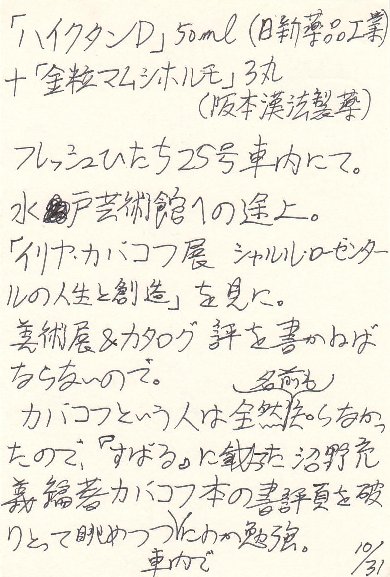 「ハイクタンD」50ml(日新薬品工業)
+「金粒マムシホルモ」3丸
(阪本漢法製薬)
フレッシュひたち25号車内にて。
水戸芸術館への途上。
「イリヤ・カバコフ展 シャルル・ローゼンター
ルの人生と創造」を見に。
美術展&カタログ評を書かねば
ならないので。
名前も
カバコフという人は全然知らなかっ
たので、『すばる』に載った沼野充
義編著カバコフ本の書評頁を破
りとって眺めつつにわか勉強。
車内で
10/31